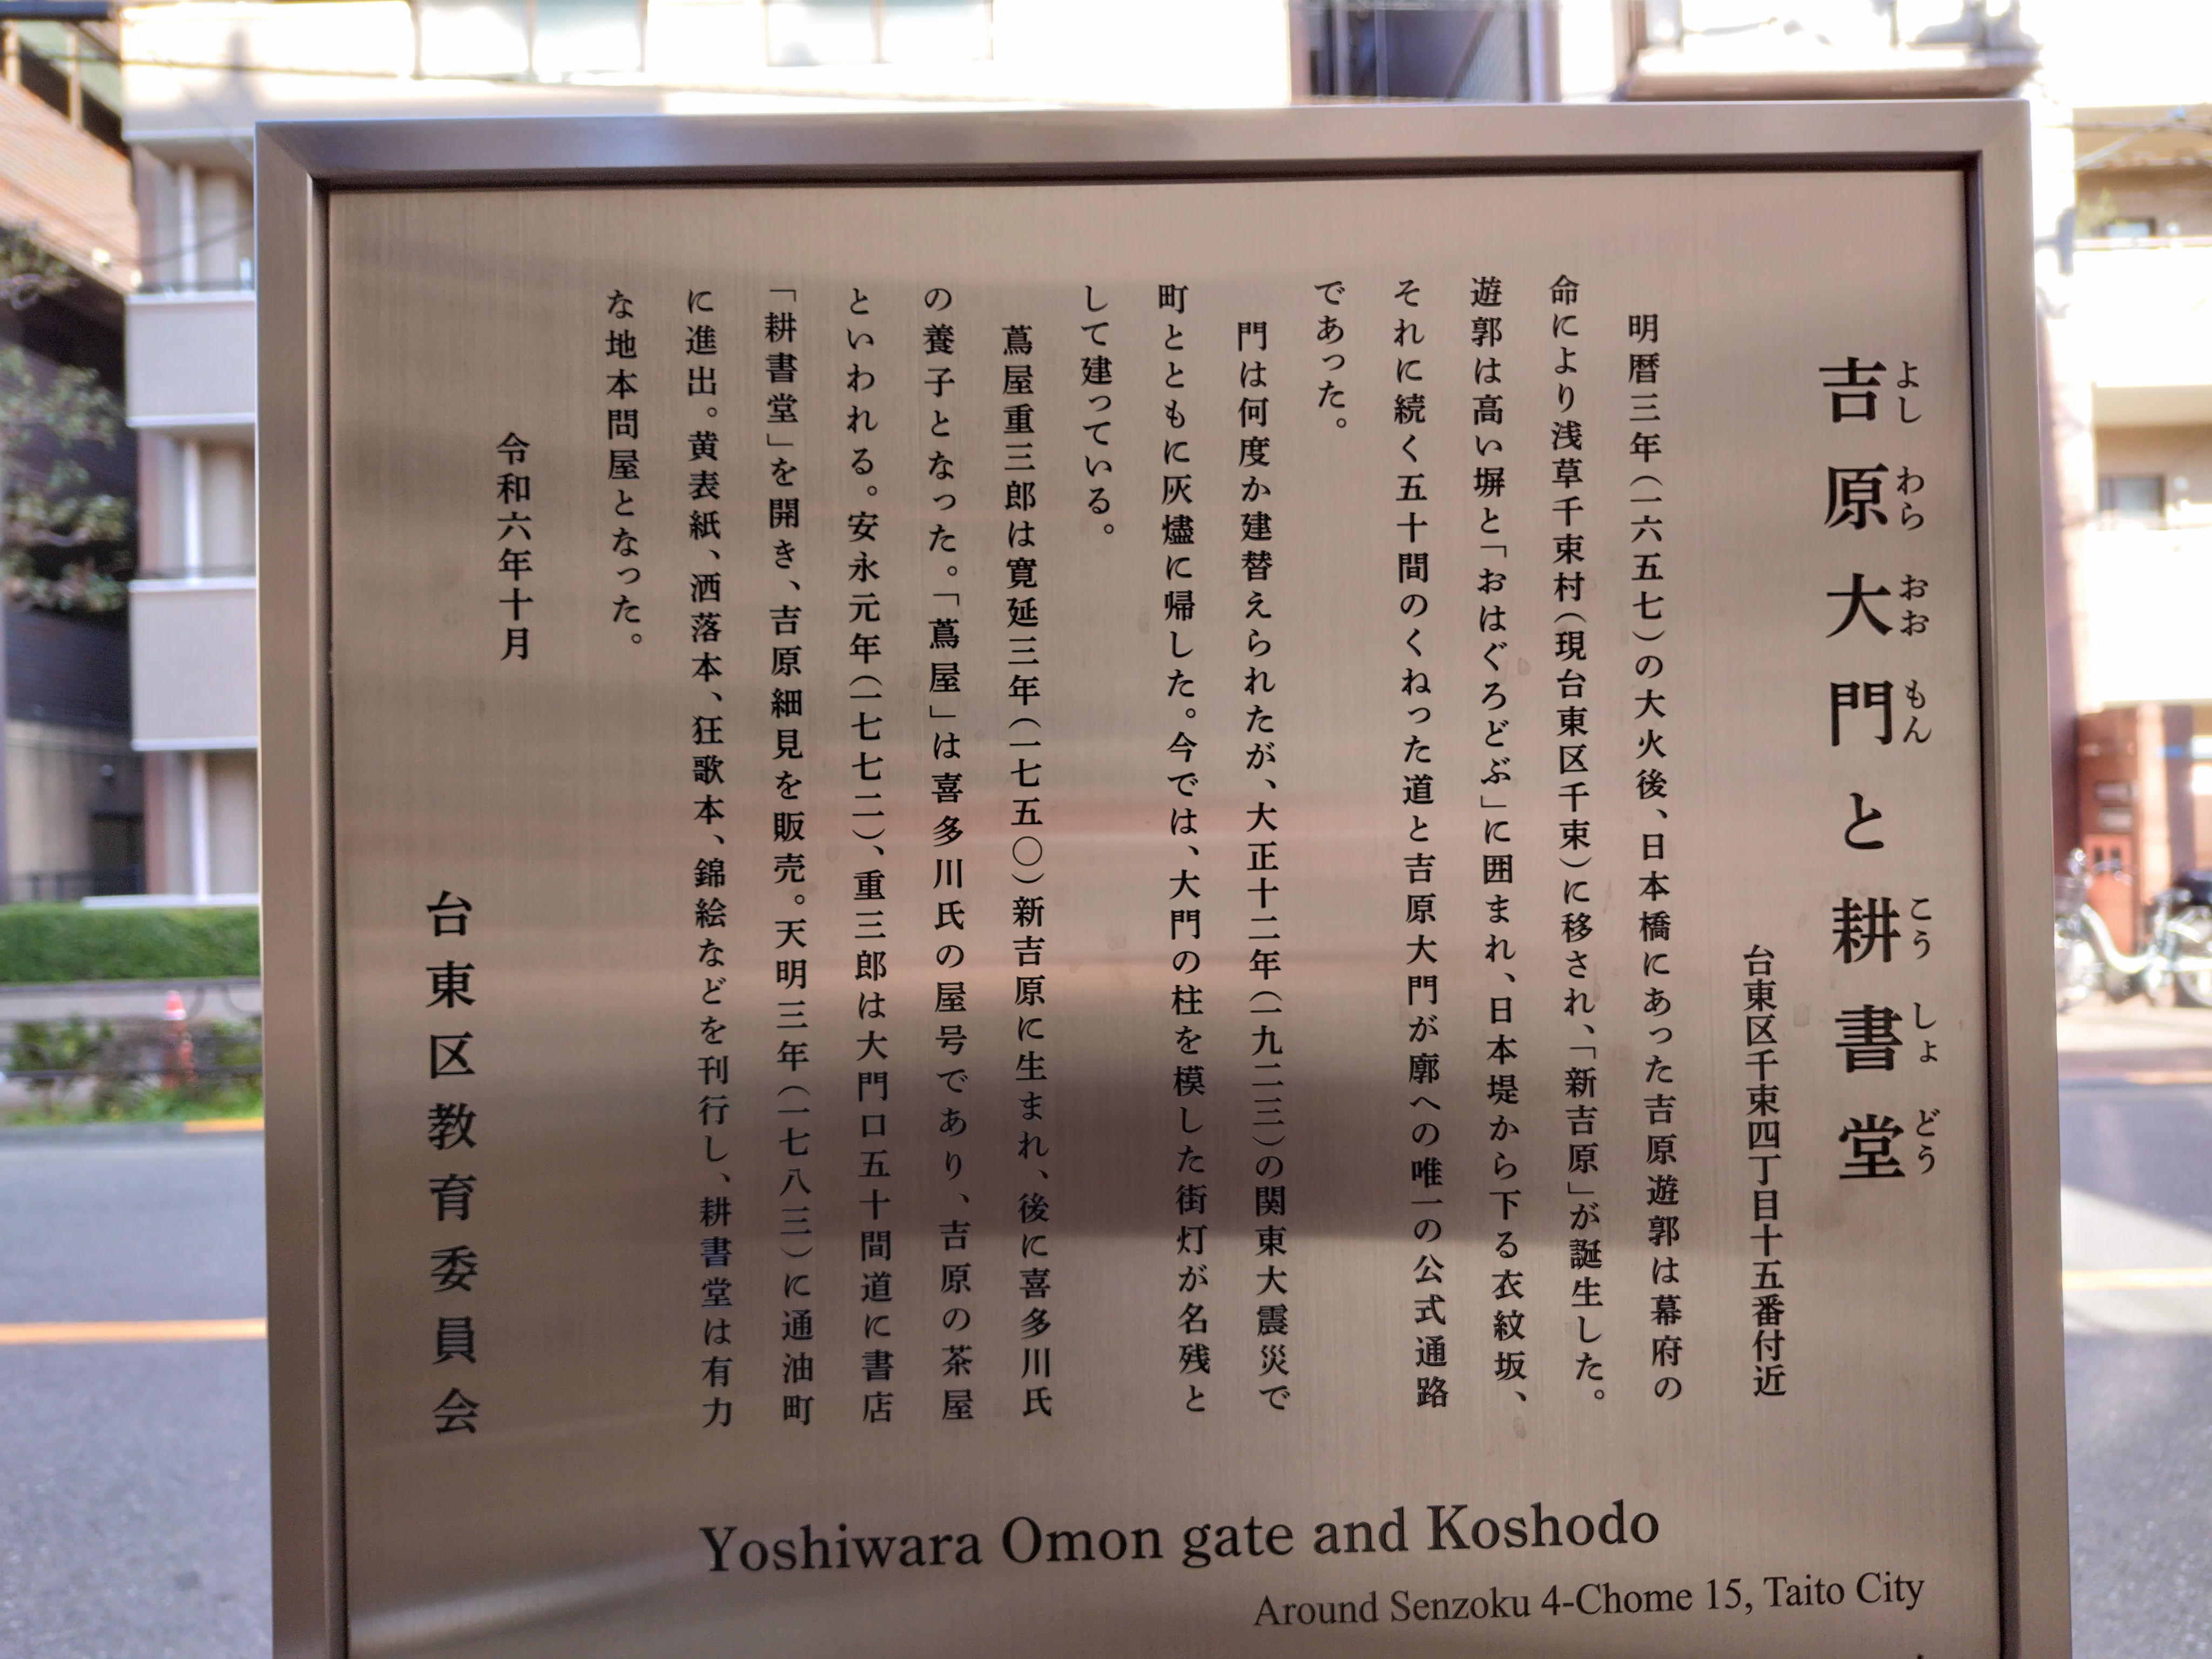 吉原大門と耕書堂
よし わら おお もん こう しょ どう
台東区千束四丁目十五番付近
明暦三年（一六五七）の大火後、日本橋にあった吉原遊郭は幕府の
命により浅草千束村（現台東区千束）に移され、「新吉原」が誕生した。
遊郭は高い塀と「おはぐろどぶ」に囲まれ、日本堤から下る衣紋坂、
それに続く五十間のくねった道と吉原大門が廓への唯一の公式通路
であった。
門は何度か建替えられたが、大正十二年（一九二三）の関東大震災で
町とともに灰燼に帰した。今では、大門の柱を模した街灯が名残と
して建っている。
蔦屋重三郎は寛延三年（一七五〇）新吉原に生まれ、後に喜多川氏
の養子となった。「蔦屋」は喜多川氏の屋号であり、吉原の茶屋
といわれる。安永元年（一七七二）、重三郎は大門口五十間道に書店
「耕書堂」を開き、吉原細見を販売。天明三年（一七八三）に通油町
に進出。黄表紙、洒落本、狂歌本、錦絵などを刊行し、耕書堂は有力
な地本問屋となった。
令和六年十月
台東区教育委員会
Yoshiwara Omon gate and Koshodo
Around Senzoku 4-Chome 15, Taito City